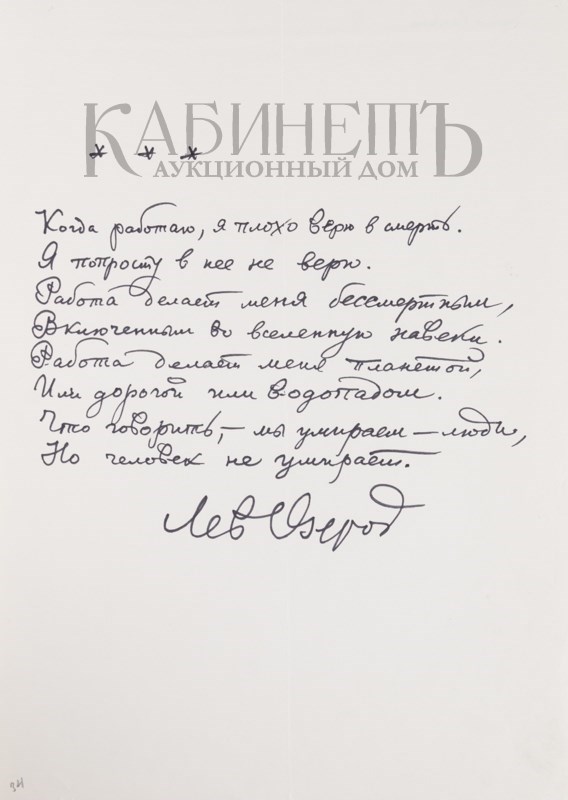 КАБИНЕТЪ
АУКЦИОННЫЙ ДОМ
* * *
Когда работаю, я плохо верю в смерть.
Я попросту в нее не верю.
Работа делает меня бессмертным,
Включенным во вселенную навеки.
Работа делает меня планетой,
Или дорогой или водопадом.
Что говорить, – мы умираем – люди,
Но человек не умирает.
Лев Озеров